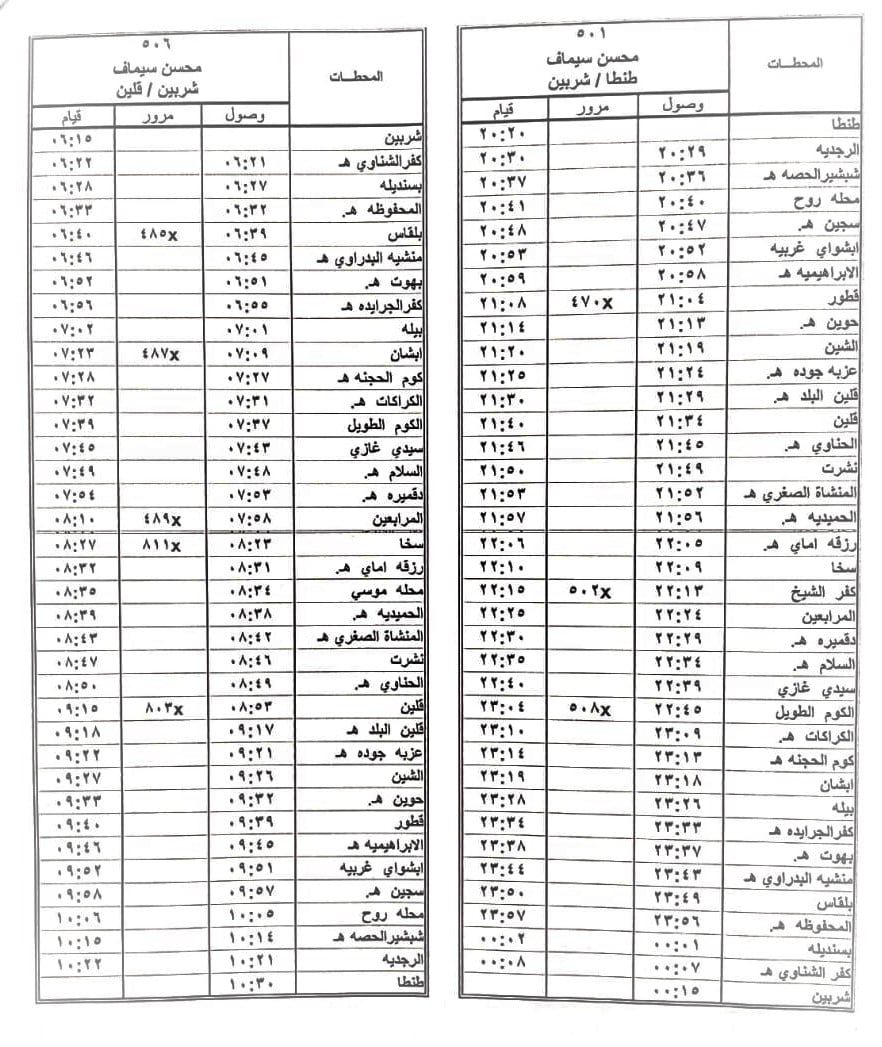 المحطـــات
٥٠١
محسن سيماف
طنطا / شربين
وصول مرور قيام
طنطا ٢٠:٢٠
الرجديه ٢٠:٢٩ ٢٠:٣٠
شبشيرالحصه هـ ٢٠:٣٦ ٢٠:٣٧
محله روح ٢٠:٤٠ ٢٠:٤١
سجين هـ. ٢٠:٤٧ ٢٠:٤٨
ابشواي غربيه ٢٠:٥٢ ٢٠:٥٣
الابراهيميه هـ ٢٠:٥٨ ٢٠:٥٩
قطور ٢١:٠٤ ٤٧٠x ٢١:٠٨
حوين هـ. ٢١:١٣ ٢١:١٤
الشين ٢١:١٩ ٢١:٢٠
عزبه جوده هـ. ٢١:٢٤ ٢١:٢٥
قلين البلد هـ. ٢١:٢٩ ٢١:٣٠
قلين ٢١:٣٤ ٢١:٤٠
الحناوي هـ. ٢١:٤٥ ٢١:٤٦
نشرت ٢١:٤٩ ٢١:٥٠
المنشاة الصغري هـ ٢١:٥٢ ٢١:٥٣
الحميديه هـ. ٢١:٥٦ ٢١:٥٧
رزقه اماي هـ. ٢٢:٠٥ ٢٢:٠٦
سخا ٢٢:٠٩ ٢٢:١٠
كفر الشيخ ٢٢:١٣ ٥٠٢x ٢٢:١٥
المرابعين ٢٢:٢٤ ٢٢:٢٥
دقميره هـ. ٢٢:٢٩ ٢٢:٣٠
السلام هـ. ٢٢:٣٤ ٢٢:٣٥
سيدي غازي ٢٢:٣٩ ٢٢:٤٠
الكوم الطويل ٢٢:٤٥ ٥٠٨x ٢٣:٠٤
الكراكات هـ. ٢٣:٠٩ ٢٣:١٠
كوم الحجنه هـ ٢٣:١٣ ٢٣:١٤
ابشان ٢٣:١٨ ٢٣:١٩
بيله ٢٣:٢٦ ٢٣:٢٨
كفرالجرايده هـ ٢٣:٣٣ ٢٣:٣٤
بهوت هـ. ٢٣:٣٧ ٢٣:٣٨
منشيه البدراوي هـ ٢٣:٤٣ ٢٣:٤٤
بلقاس ٢٣:٤٩ ٢٣:٥٠
المحفوظه هـ. ٢٣:٥٦ ٢٣:٥٧
بسنديله ٠٠:٠١ ٠٠:٠٢
كفر الشناوي هـ ٠٠:٠٧ ٠٠:٠٨
شربين ٠٠:١٥
المحطـــات
٥٠٦
محسن سيماف
شربين / قلين
وصول مرور قيام
شربين ٠٦:١٥
كفرالشناوي هـ ٠٦:٢١ ٠٦:٢٢
بسنديله ٠٦:٢٧ ٠٦:٢٨
المحفوظه هـ. ٠٦:٣٢ ٠٦:٣٣
بلقاس ٠٦:٣٩ ٤٨٥x ٠٦:٤٠
منشيه البدراوي هـ ٠٦:٤٥ ٠٦:٤٦
بهوت هـ. ٠٦:٥١ ٠٦:٥٢
كفرالجرايده هـ ٠٦:٥٥ ٠٦:٥٦
بيله ٠٧:٠١ ٠٧:٠٢
ابشان ٠٧:٠٩ ٤٨٧x ٠٧:٢٣
كوم الحجنه هـ ٠٧:٢٧ ٠٧:٢٨
الكراكات هـ. ٠٧:٣١ ٠٧:٣٢
الكوم الطويل ٠٧:٣٧ ٠٧:٣٩
سيدي غازي ٠٧:٤٣ ٠٧:٤٥
السلام هـ. ٠٧:٤٨ ٠٧:٤٩
دقميره هـ. ٠٧:٥٣ ٠٧:٥٤
المرابعين ٠٧:٥٨ ٤٨٩x ٠٨:١٠
سخا ٠٨:٢٣ ٨١١x ٠٨:٢٧
رزقه اماي هـ. ٠٨:٣١ ٠٨:٣٢
محله موسي ٠٨:٣٤ ٠٨:٣٥
الحميديه هـ. ٠٨:٣٨ ٠٨:٣٩
المنشاة الصغري هـ ٠٨:٤٢ ٠٨:٤٣
نشرت ٠٨:٤٦ ٠٨:٤٧
الحناوي هـ. ٠٨:٤٩ ٠٨:٥٠
قلين ٠٨:٥٣ ٨٠٣x ٠٩:١٥
قلين البلد هـ. ٠٩:١٧ ٠٩:١٨
عزبه جوده هـ ٠٩:٢١ ٠٩:٢٢
الشين ٠٩:٢٦ ٠٩:٢٧
حوين هـ. ٠٩:٣٢ ٠٩:٣٣
قطور ٠٩:٣٩ ٠٩:٤٠
الابراهيميه هـ ٠٩:٤٥ ٠٩:٤٦
ابشواي غربيه ٠٩:٥١ ٠٩:٥٢
سجين هـ. ٠٩:٥٧ ٠٩:٥٨
محله روح ١٠:٠٥ ١٠:٠٦
شبشيرالحصه هـ ١٠:١٤ ١٠:١٥
الرجديه ١٠:٢١ ١٠:٢٢
طنطا ١٠:٣٠